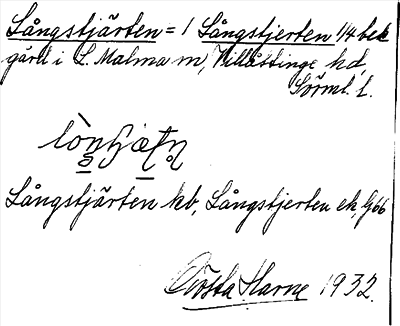 Långstjärten = 1 Långstjerten 1/4 bek
gård i L. Malma sn, Villåttinge hd,
Sörml. l.
Långstjärten kb, Långstjerten ek, G66
Gösta Harne 1932.